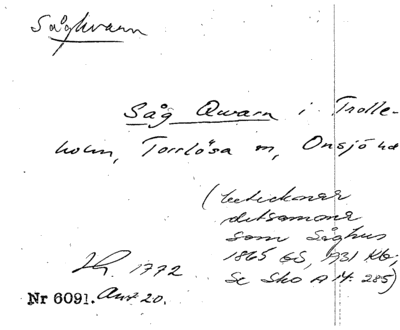 Såghvarn
Såg Qwarn i Trolle-
holm, Torrlösa sn, Onsjö hd
(betecknar
detsamma
som Såghus
1865 GS, 1931 Kb,
se Sko A 14: 285)
1772
Nr 6091. Avs. 20.